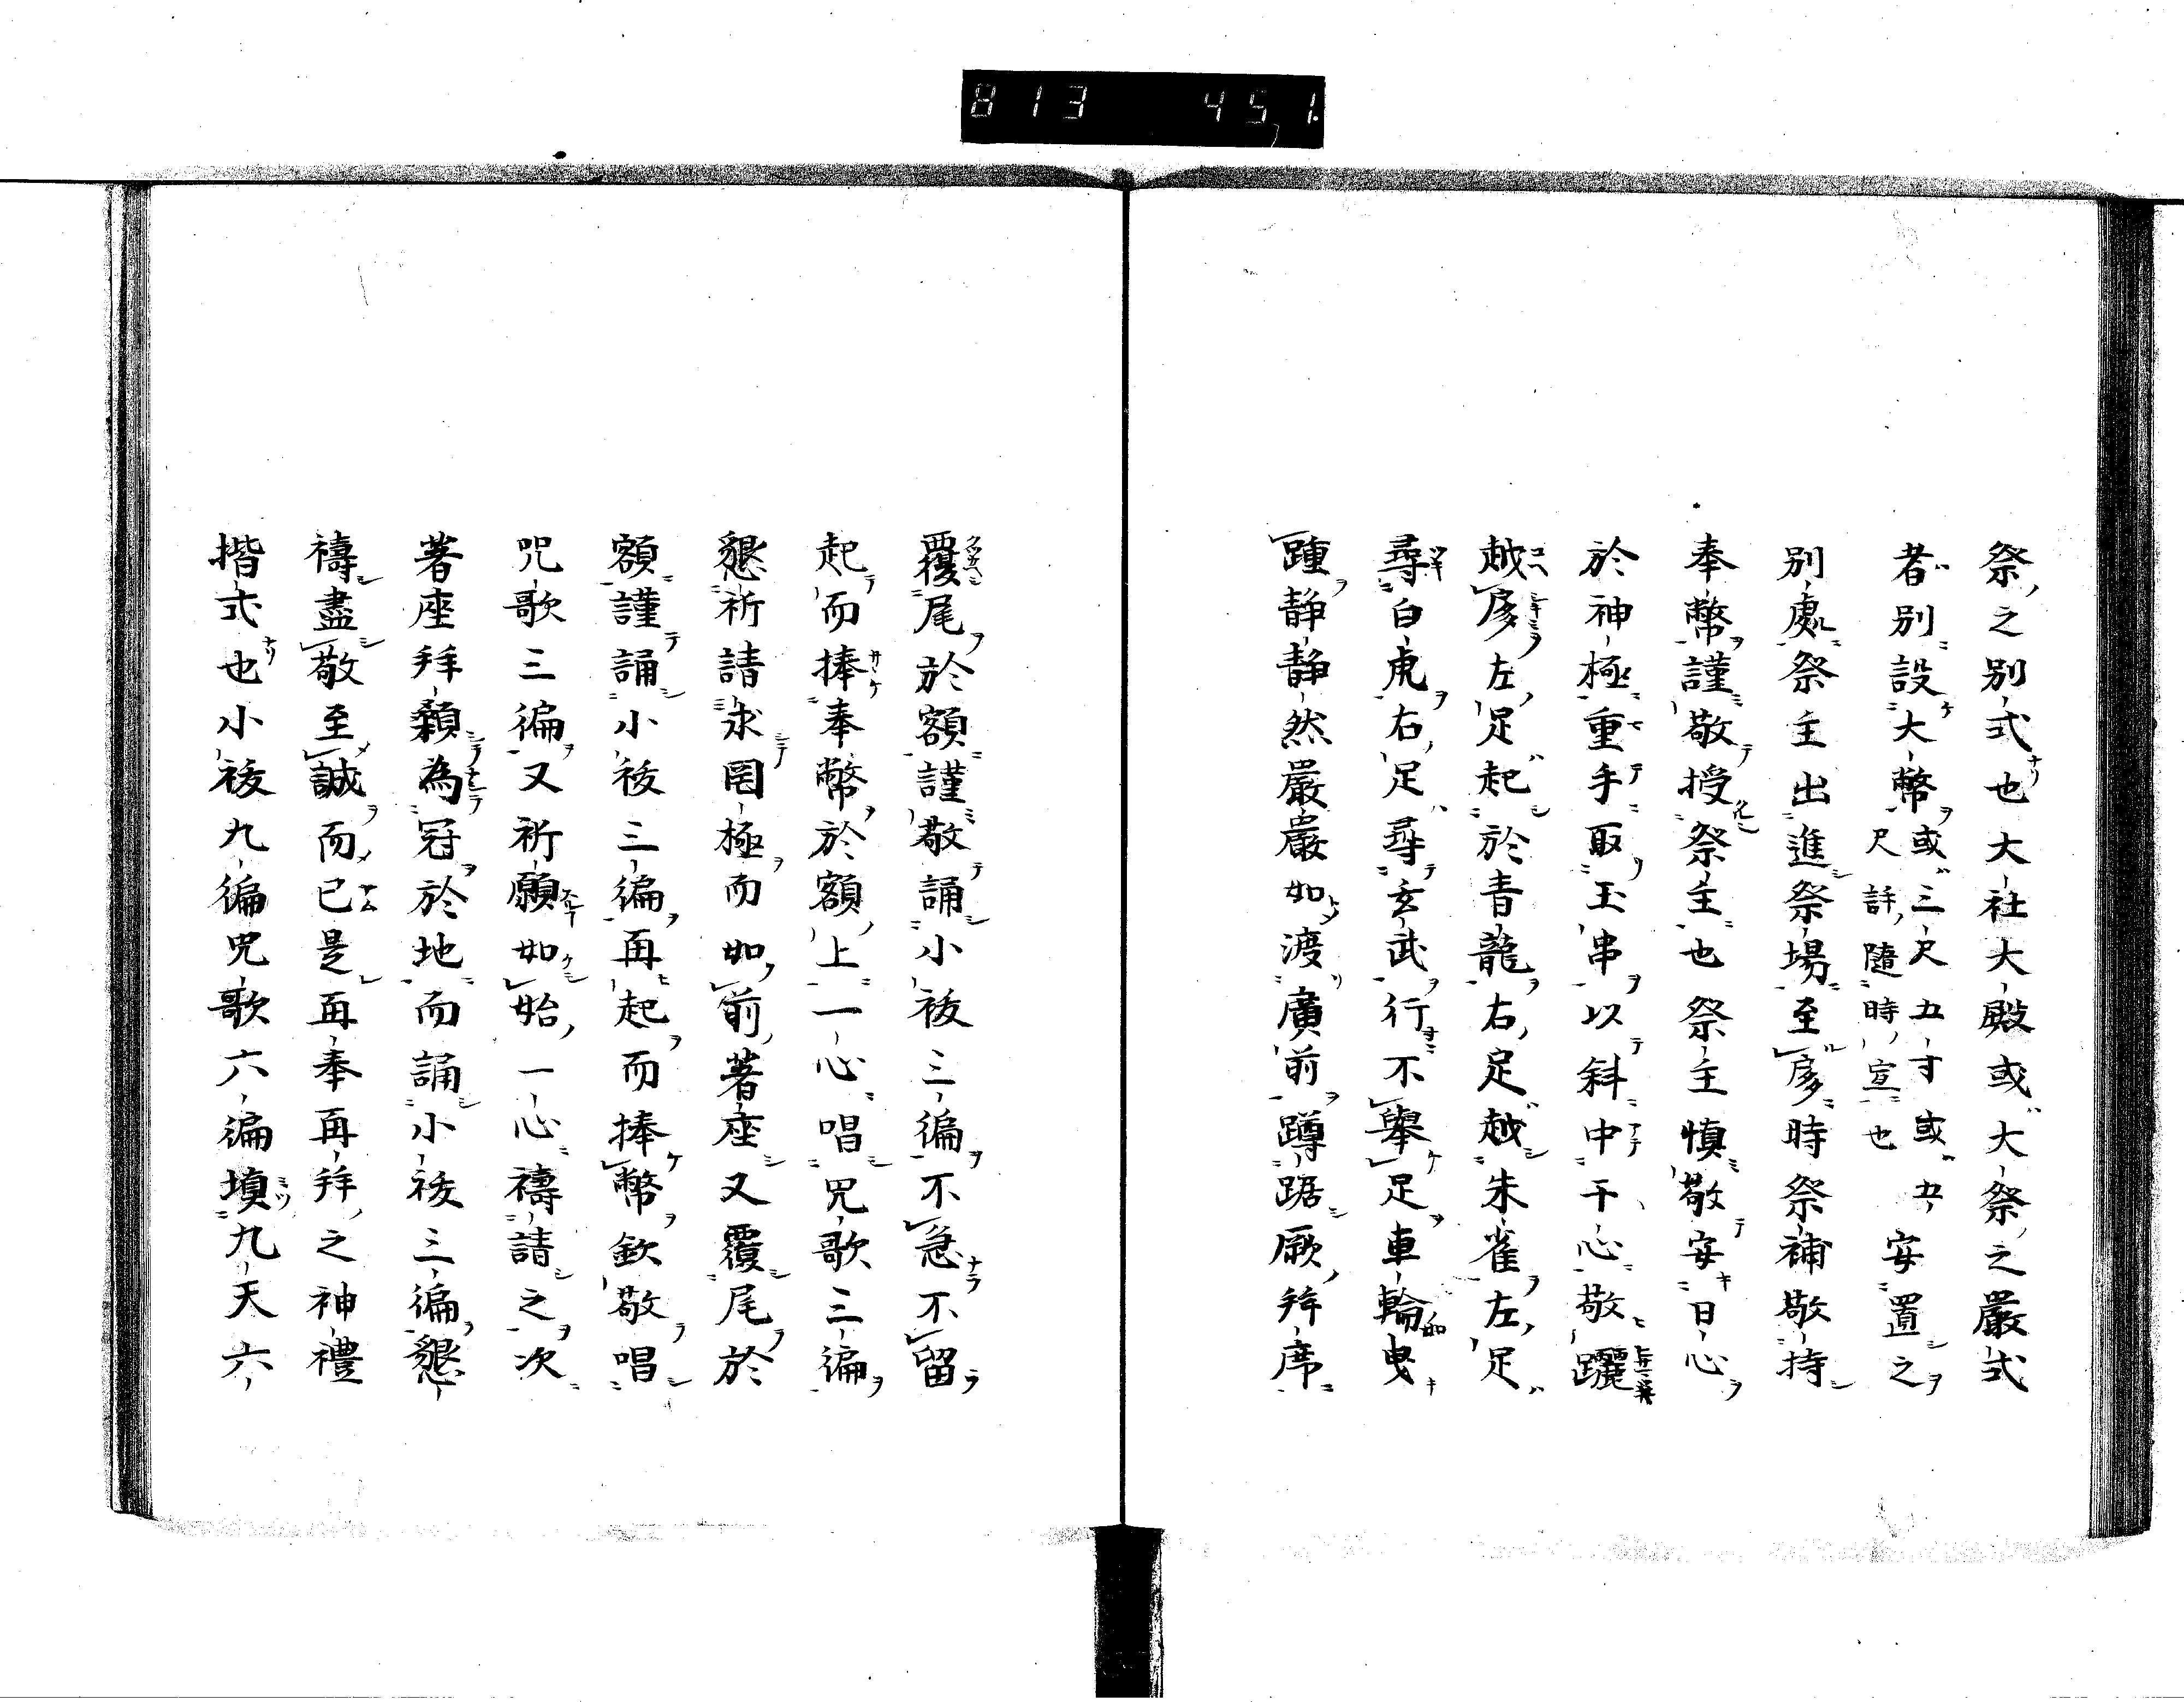 813 451.
祭之別式也大社大殿或大祭之嚴式
者別設大幣或三尺五寸或五尺許隨時宣也安置之
別處祭主出進祭場至彦時祭補敬持
奉幣謹敬授祭主也祭主慎敬安日心
於神極重手取玉串以斜中干心敬躧
越彦左足起於青龍右足越朱雀左足
尋白虎右足尋玄武行不擧足車輪曳
踵静静然嚴嚴如渡廣前蹲踞厥拜席
覆尾於額謹敬誦小祓三徧不急不留
起而捧奉幣於額上一心唱咒歌三徧
懇祈請求罔極而如前著座又覆尾於
額謹誦小祓三徧再起而捧幣欽敬唱
咒歌三徧又祈願如始一心禱請之次
著座拜顙為冠於地而誦小祓三徧懇
禱盡敬至誠而已是再奉再拜之神禮
揩式也小祓九徧咒歌六徧塡九天六